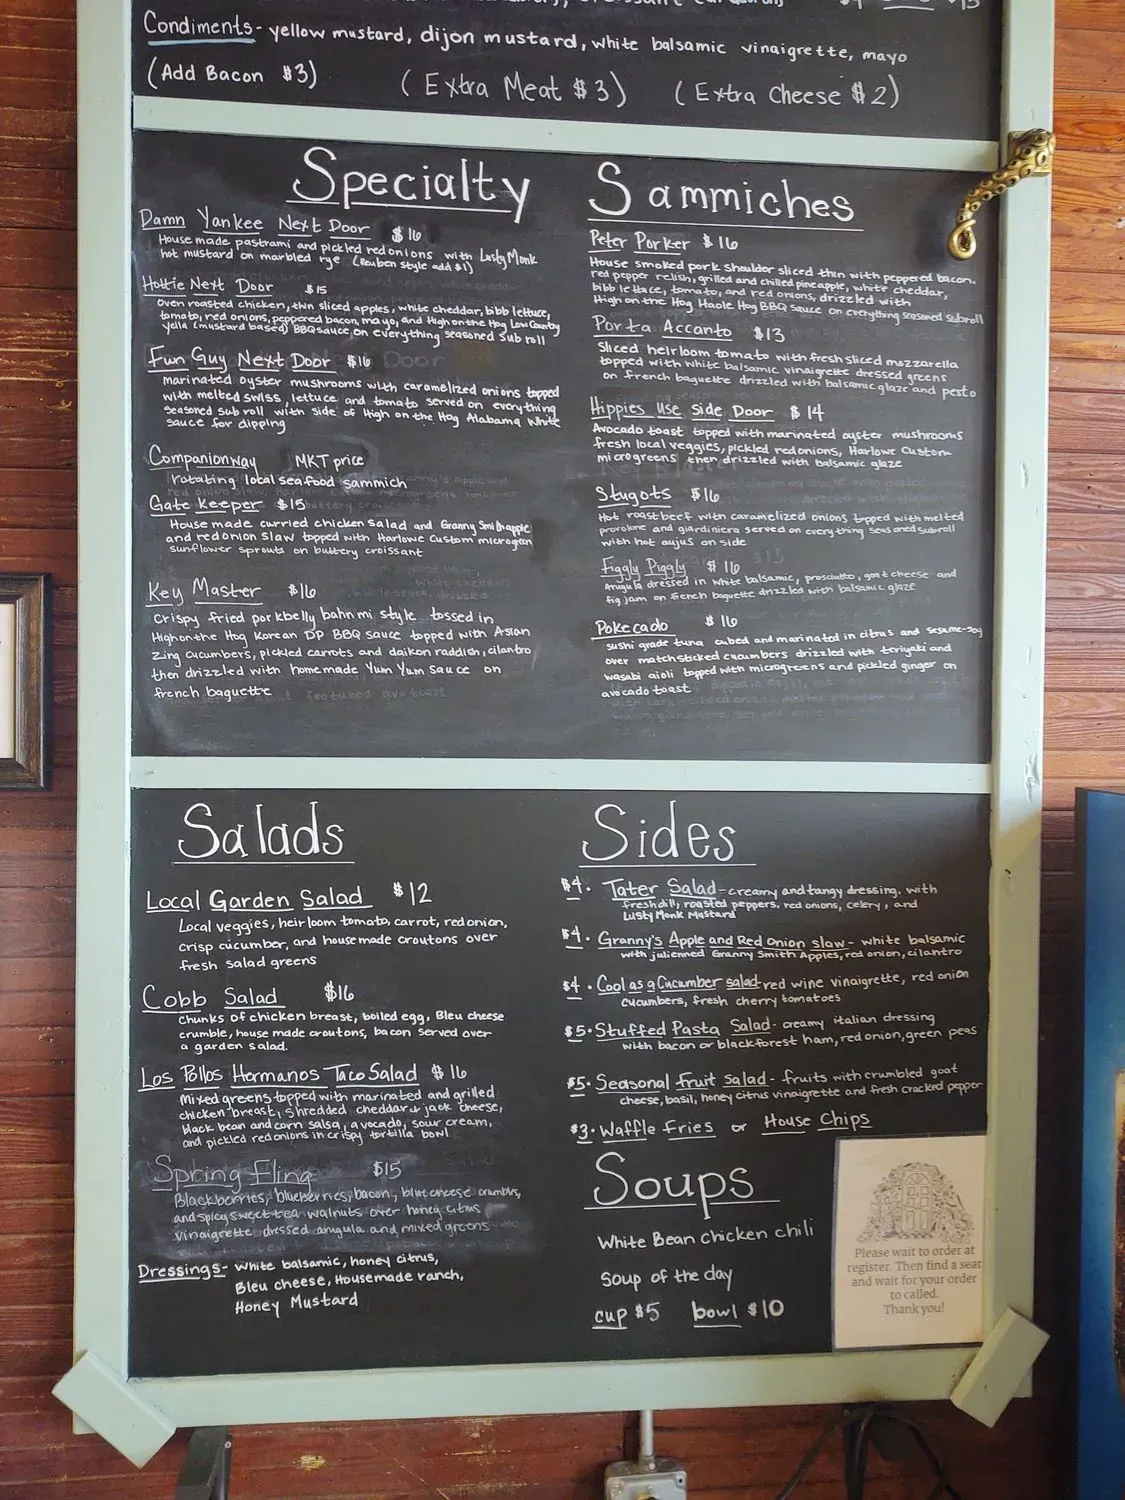 Condiments - yellow mustard, dijon mustard, white balsamic vinaigrette, mayo
(Add Bacon $3) (Extra Meat $3) (Extra Cheese $2)
Specialty Sammiches
Damn Yankee Next Door $16
House made pastrami and pickled red onions with Lusty Monk
hot mustard on marbled rye (Reuben style add $1)
Hottie Next Door $15
oven roasted chicken, thin sliced apples, white cheddar, bibb lettuce,
tomato, red onions, peppered bacon, mayo, and High on the Hog Low Country
yella (mustard based) BBQ sauce, on everything seasoned sub roll
Fun Guy Next Door $16
marinated oyster mushrooms with caramelized onions topped
with melted swiss, lettuce and tomato served on everything
seasoned sub roll with side of High on the Hog Alabama White
sauce for dipping
Companionway MKT price
rotating local seafood sammich
Gate Keeper $15
House made curried chicken salad and Granny Smith apple
and red onion slaw topped with Harlowe Custom microgreen
sunflower sprouts on buttery croissant
Key Master $16
crispy fried porkbelly bahn mi style tossed in
High on the Hog Korean DP BBQ sauce topped with Asian
Zing cucumbers, pickled carrots and daikon raddish, cilantro
then drizzled with homemade Yum Yum sauce on
french baguette
Peter Porker $16
House smoked pork shoulder sliced thin with peppered bacon,
red pepper relish, grilled and chilled pineapple, white cheddar,
bibb lettuce, tomato, and red onions, drizzled with
High on the Hog Haole Hog BBQ sauce on everything seasoned subroll
Porta Accanto $13
Sliced heirloom tomato with fresh sliced mozzarella
topped with white balsamic vinaigrette dressed greens
on french baguette drizzled with balsamic glaze and pesto
Hippies Use Side Door $14
Avocado toast topped with marinated oyster mushrooms
fresh local veggies, pickled red onions, Harlowe Custom
microgreens then drizzled with balsamic glaze
Stugots $16
Hot roast beef with caramelized onions topped with melted
provolone and giardiniera served on everything seasoned subroll
with hot aujus on side
Figgly Piggly $16
Arugula dressed in white balsamic, prosciutto, goat cheese and
fig jam on french baguette drizzled with balsamic glaze
Pokecado $16
sushi grade tuna cubed and marinated in citrus and sesame-soy
over matchsticked cucumbers drizzled with teriyaki and
wasabi aioli topped with microgreens and pickled ginger on
avocado toast
Salads
Local Garden Salad $12
Local veggies, heirloom tomato, carrot, red onion,
crisp cucumber, and housemade croutons over
fresh salad greens
Cobb Salad $16
chunks of chicken breast, boiled egg, Bleu cheese
crumble, house made croutons, bacon served over
a garden salad.
Los Pollos Hermanos Taco Salad $16
Mixed greens topped with marinated and grilled
chicken breast, shredded cheddar & jack cheese,
black bean and corn salsa, avocado, sour cream,
and pickled red onions in crispy tortilla bowl
Spring Fling $15
Blackberries, blueberries, bacon, blue cheese crumbles,
and spicy sweet tea walnuts over honey citrus
vinaigrette dressed arugula and mixed greens
Dressings - white balsamic, honey citrus,
Bleu cheese, Housemade ranch,
Honey Mustard
Sides
$4 · Tater Salad - creamy and tangy dressing, with
fresh dill, roasted peppers, red onions, celery, and
Lusty Monk Mustard
$4 · Granny's Apple and Red Onion slaw - white balsamic
with julienned Granny Smith Apples, red onion, cilantro
$4 · Cool as a Cucumber salad - red wine vinaigrette, red onion
cucumbers, fresh cherry tomatoes
$5 · Stuffed Pasta Salad - creamy italian dressing
with bacon or blackforest ham, red onion, green peas
$5 · Seasonal Fruit Salad - fruits with crumbled goat
cheese, basil, honey citrus vinaigrette and fresh cracked pepper
$3 · Waffle Fries or House Chips
Soups
White Bean chicken chili
Soup of the day
cup $5 bowl $10
Please wait to order at
register. Then find a seat
and wait for your order
to called.
Thank you!